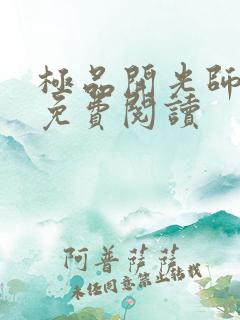 極品開光師
免費閱讀
阿普薩薩
未經同意禁止轉載